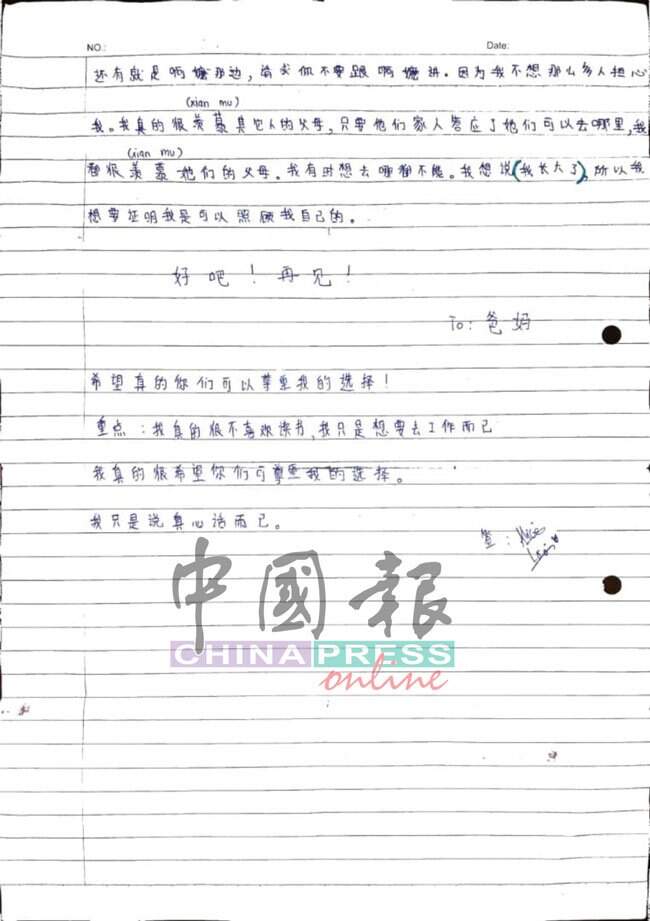 NO.:
Date:
还有就是啊嬷那边，请求你不要跟啊嬷讲。因为我不想那么多人担心
(xian mu)
我。我真的很羡慕其它人的父母，只要他们家人答应了她们可以去哪里，我
(xian mu)
都很羡慕她们的父母。我有时想去哪都不能。我想说(我长大了)，所以我
想要证明我是可以照顾我自己的。
好吧！再见！
To：爸妈
希望真的你们可以尊重我的选择！
重点：我真的很不喜欢读书，我只是想要去工作而已
我真的很希望你们可尊重我的选择。
我只是说真心话而已。
签：
中國報
CHINA PRESS
online